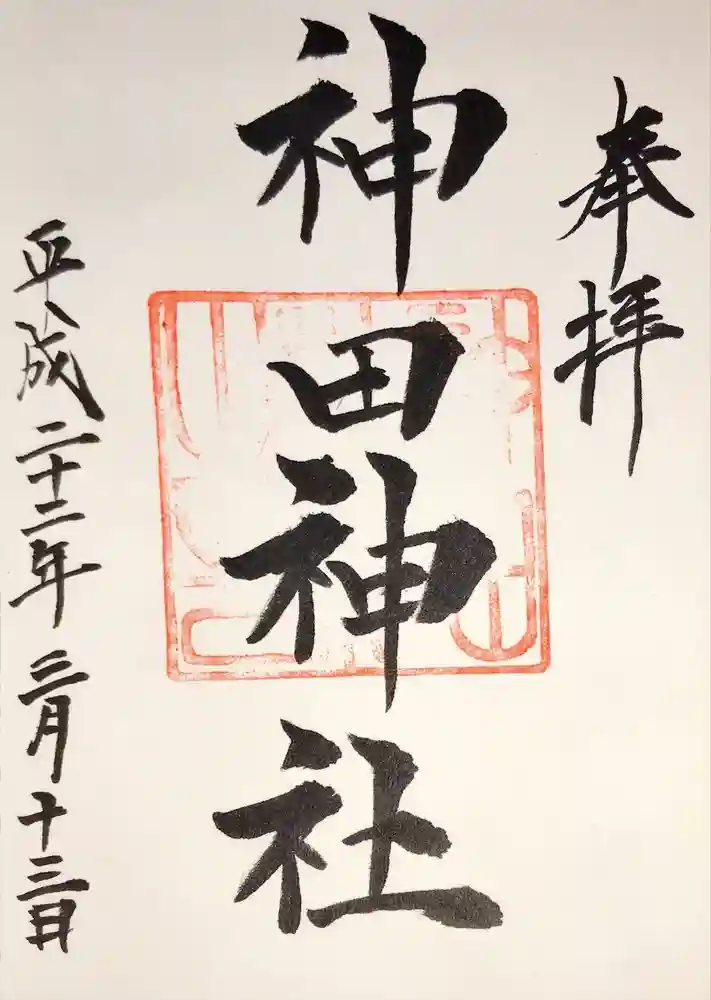 奉拝
神田神社
平成二十二年三月十三日